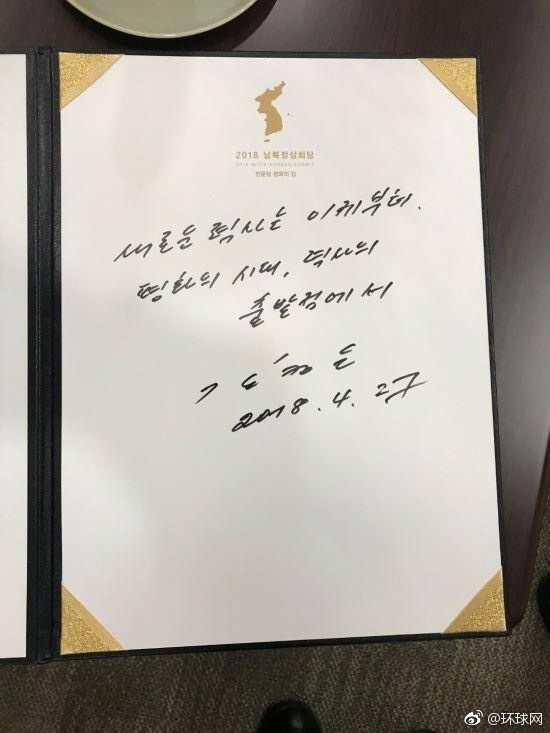 2018 남북정상회담
2018 INTER-KOREAN SUMMIT
판문점 평화의 집
새로운 력사는 이제부터.
평화의 시대, 력사의
출발점에서
김정은
2018. 4. 27
@环球网